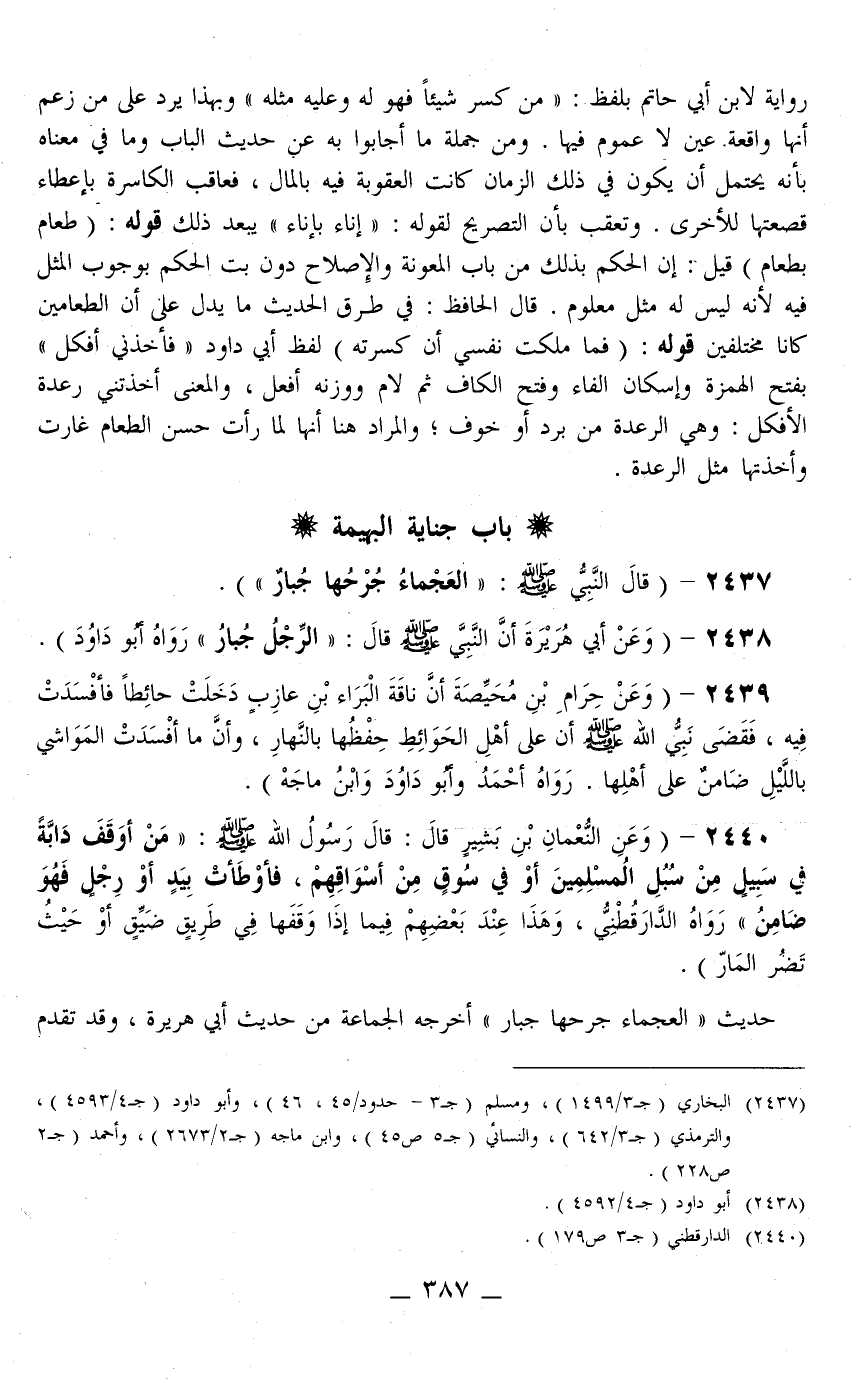 رواية لابن أبي حاتم بلفظ : « من كسر شيئاً فهو له وعليه مثله » وبهذا يرد على من زعم
أنها واقعة عين لا عموم فيها . ومن جملة ما أجابوا به عن حديث الباب وما في معناه
بأنه يحتمل أن يكون في ذلك الزمان كانت العقوبة فيه بالمال ، فعاقب الكاسرة بإعطاء
قصعتها للأخرى . وتعقب بأن التصريح لقوله : « إناء بإناء » يبعد ذلك قوله : ( طعام
بطعام ) قيل : إن الحكم بذلك من باب المعونة والإصلاح دون بت الحكم بوجوب المثل
فيه لأنه ليس له مثل معلوم . قال الحافظ : في طرق الحديث ما يدل على أن الطعامين
كانا مختلفين قوله : ( فما ملكت نفسي أن كسرته ) لفظ أبي داود « فأخذني أفكل »
بفتح الهمزة وإسكان الفاء وفتح الكاف ثم لام ووزنه أفعل ، والمعنى أخذتني رعدة
الأفكل : وهي الرعدة من برد أو خوف ؛ والمراد هنا أنها لما رأت حسن الطعام غارت
وأخذتها مثل الرعدة .
باب جناية البهيمة
٢٤٣٧ – ( قالَ النَّبِيُّ ﷺ : « العَجْماءُ جُرْحُها جُبارٌ » ) .
٢٤٣٨ – ( وَعَنْ أبي هُرَيْرَةَ أنَّ النَّبِيَّ ﷺ قالَ : « الرِّجْلُ جُبارُ » رَوَاهُ أبُو دَاوُدَ ) .
٢٤٣٩ – ( وَعَنْ حِرَامِ بْنِ مُحَيِّصَةَ أنَّ ناقَةَ الْبَرَاء بْنِ عازِبٍ دَخَلَتْ حائِطاً فأفْسَدَتْ
فِيه ، فَقَضَى نَبِيُّ الله ﷺ أن على أهْلِ الحَوَائِطِ حِفْظُها بالنَّهارِ ، وأنَّ ما أفْسَدَتْ المَوَاشي
باللَّيْلِ ضَامنٌ على أهْلِها . رَوَاهُ أحْمَدُ وأبُو دَاوُدَ وَابْنُ ماجَهْ ) .
٢٤٤٠ – ( وَعَنِ النُّعْمانِ بْنِ بَشِيرٍ قالَ : قالَ رَسُولُ الله ﷺ : « مَنْ أوقَفَ دَابَّةً
في سَبِيلٍ مِنْ سُبُلِ الْمسْلِمِينَ أوْ في سُوقٍ مِنْ أسْوَاقِهِمْ ، فأوْطَأتْ بِيَدٍ أوْ رِجْلٍ فَهُوَ
ضَامِنْ » رَوَاهُ الدَّارَقُطْنِيُّ ، وَهَذَا عِنْدَ بَعْضِهِمْ فِيما إذَا وَقَفَها فِي طَرِيقٍ ضَيِّقٍ أوْ حَيْثُ
تَضُر المَارّ ) .
حديث « العجماء جرحها جبار » أخرجه الجماعة من حديث أبي هريرة ، وقد تقدم
(٢٤٣٧) البخاري ( جـ٣/١٤٩٩ ) ، ومسلم ( جـ٣ – حدود/٤٥ ، ٤٦ ) ، وأبو داود ( جـ٤/٤٥٩٣ ) ،
والترمذي ( جـ٣/٦٤٢ ) ، والنسائي ( جـ٥ ص٤٥ ) ، وابن ماجه ( جـ٢/٢٦٧٣ ) ، وأحمد ( جـ٢
ص٢٢٨ ) .
(٢٤٣٨) أبو داود ( جـ٤/٤٥٩٢ ) .
(٢٤٤٠) الدارقطني ( جـ٣ ص١٧٩ ) .
– ٣٨٧ –